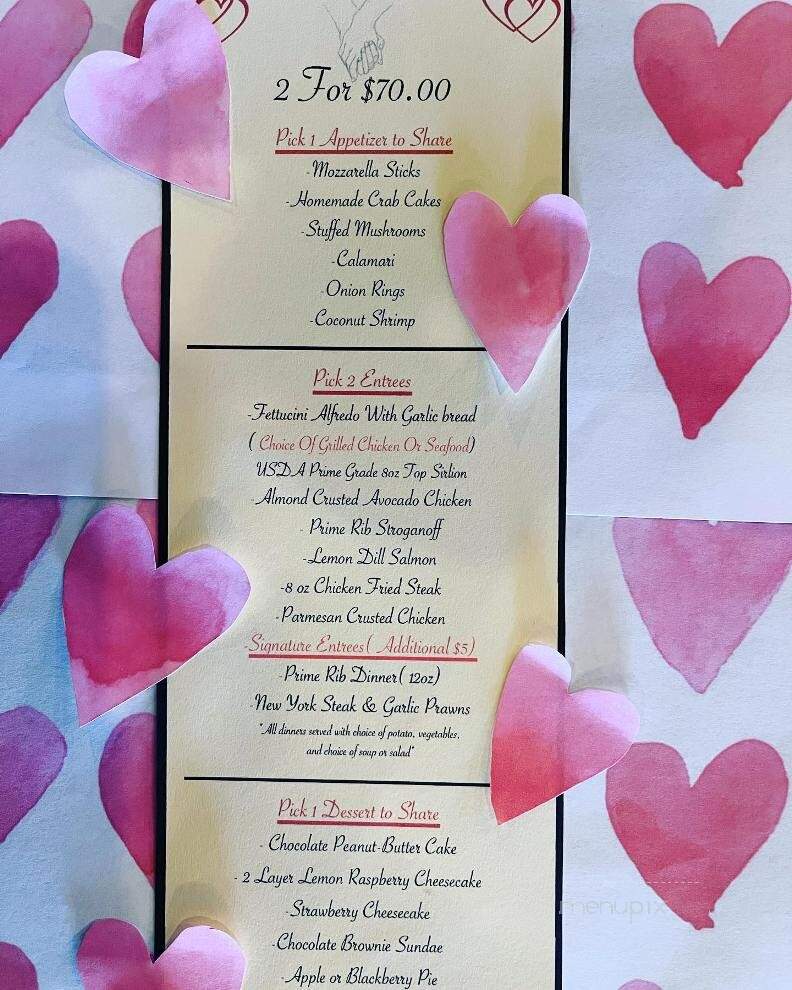 2 For $70.00
Pick 1 Appetizer to Share
-Mozzarella Sticks
-Homemade Crab Cakes
-Stuffed Mushrooms
-Calamari
-Onion Rings
-Coconut Shrimp
Pick 2 Entrees
-Fettucini Alfredo With Garlic bread
( Choice Of Grilled Chicken Or Seafood)
USDA Prime Grade 8oz Top Sirlion
-Almond Crusted Avocado Chicken
- Prime Rib Stroganoff
-Lemon Dill Salmon
-8 oz Chicken Fried Steak
-Parmesan Crusted Chicken
-Signature Entrees( Additional $5)
-Prime Rib Dinner( 12oz)
-New York Steak & Garlic Prawns
"All dinners served with choice of potato, vegetables,
and choice of soup or salad"
Pick 1 Dessert to Share
- Chocolate Peanut-Butter Cake
- 2 Layer Lemon Raspberry Cheesecake
-Strawberry Cheesecake
-Chocolate Brownie Sundae
-Apple or Blackberry Pie
menupix